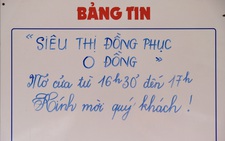 BẢNG TIN
"SIÊU THỊ ĐỒNG PHỤC
O ĐỒNG"
Mở cửa từ 16h30' đến 17h
Kính mời quý khách !